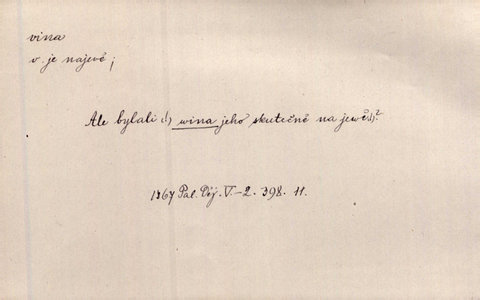 vina
v. je najevě ;
Ale bylali (!) wina jeho skutečně na jewě(!)?
1867 Pal. Děj. V.–2. 398. 11.